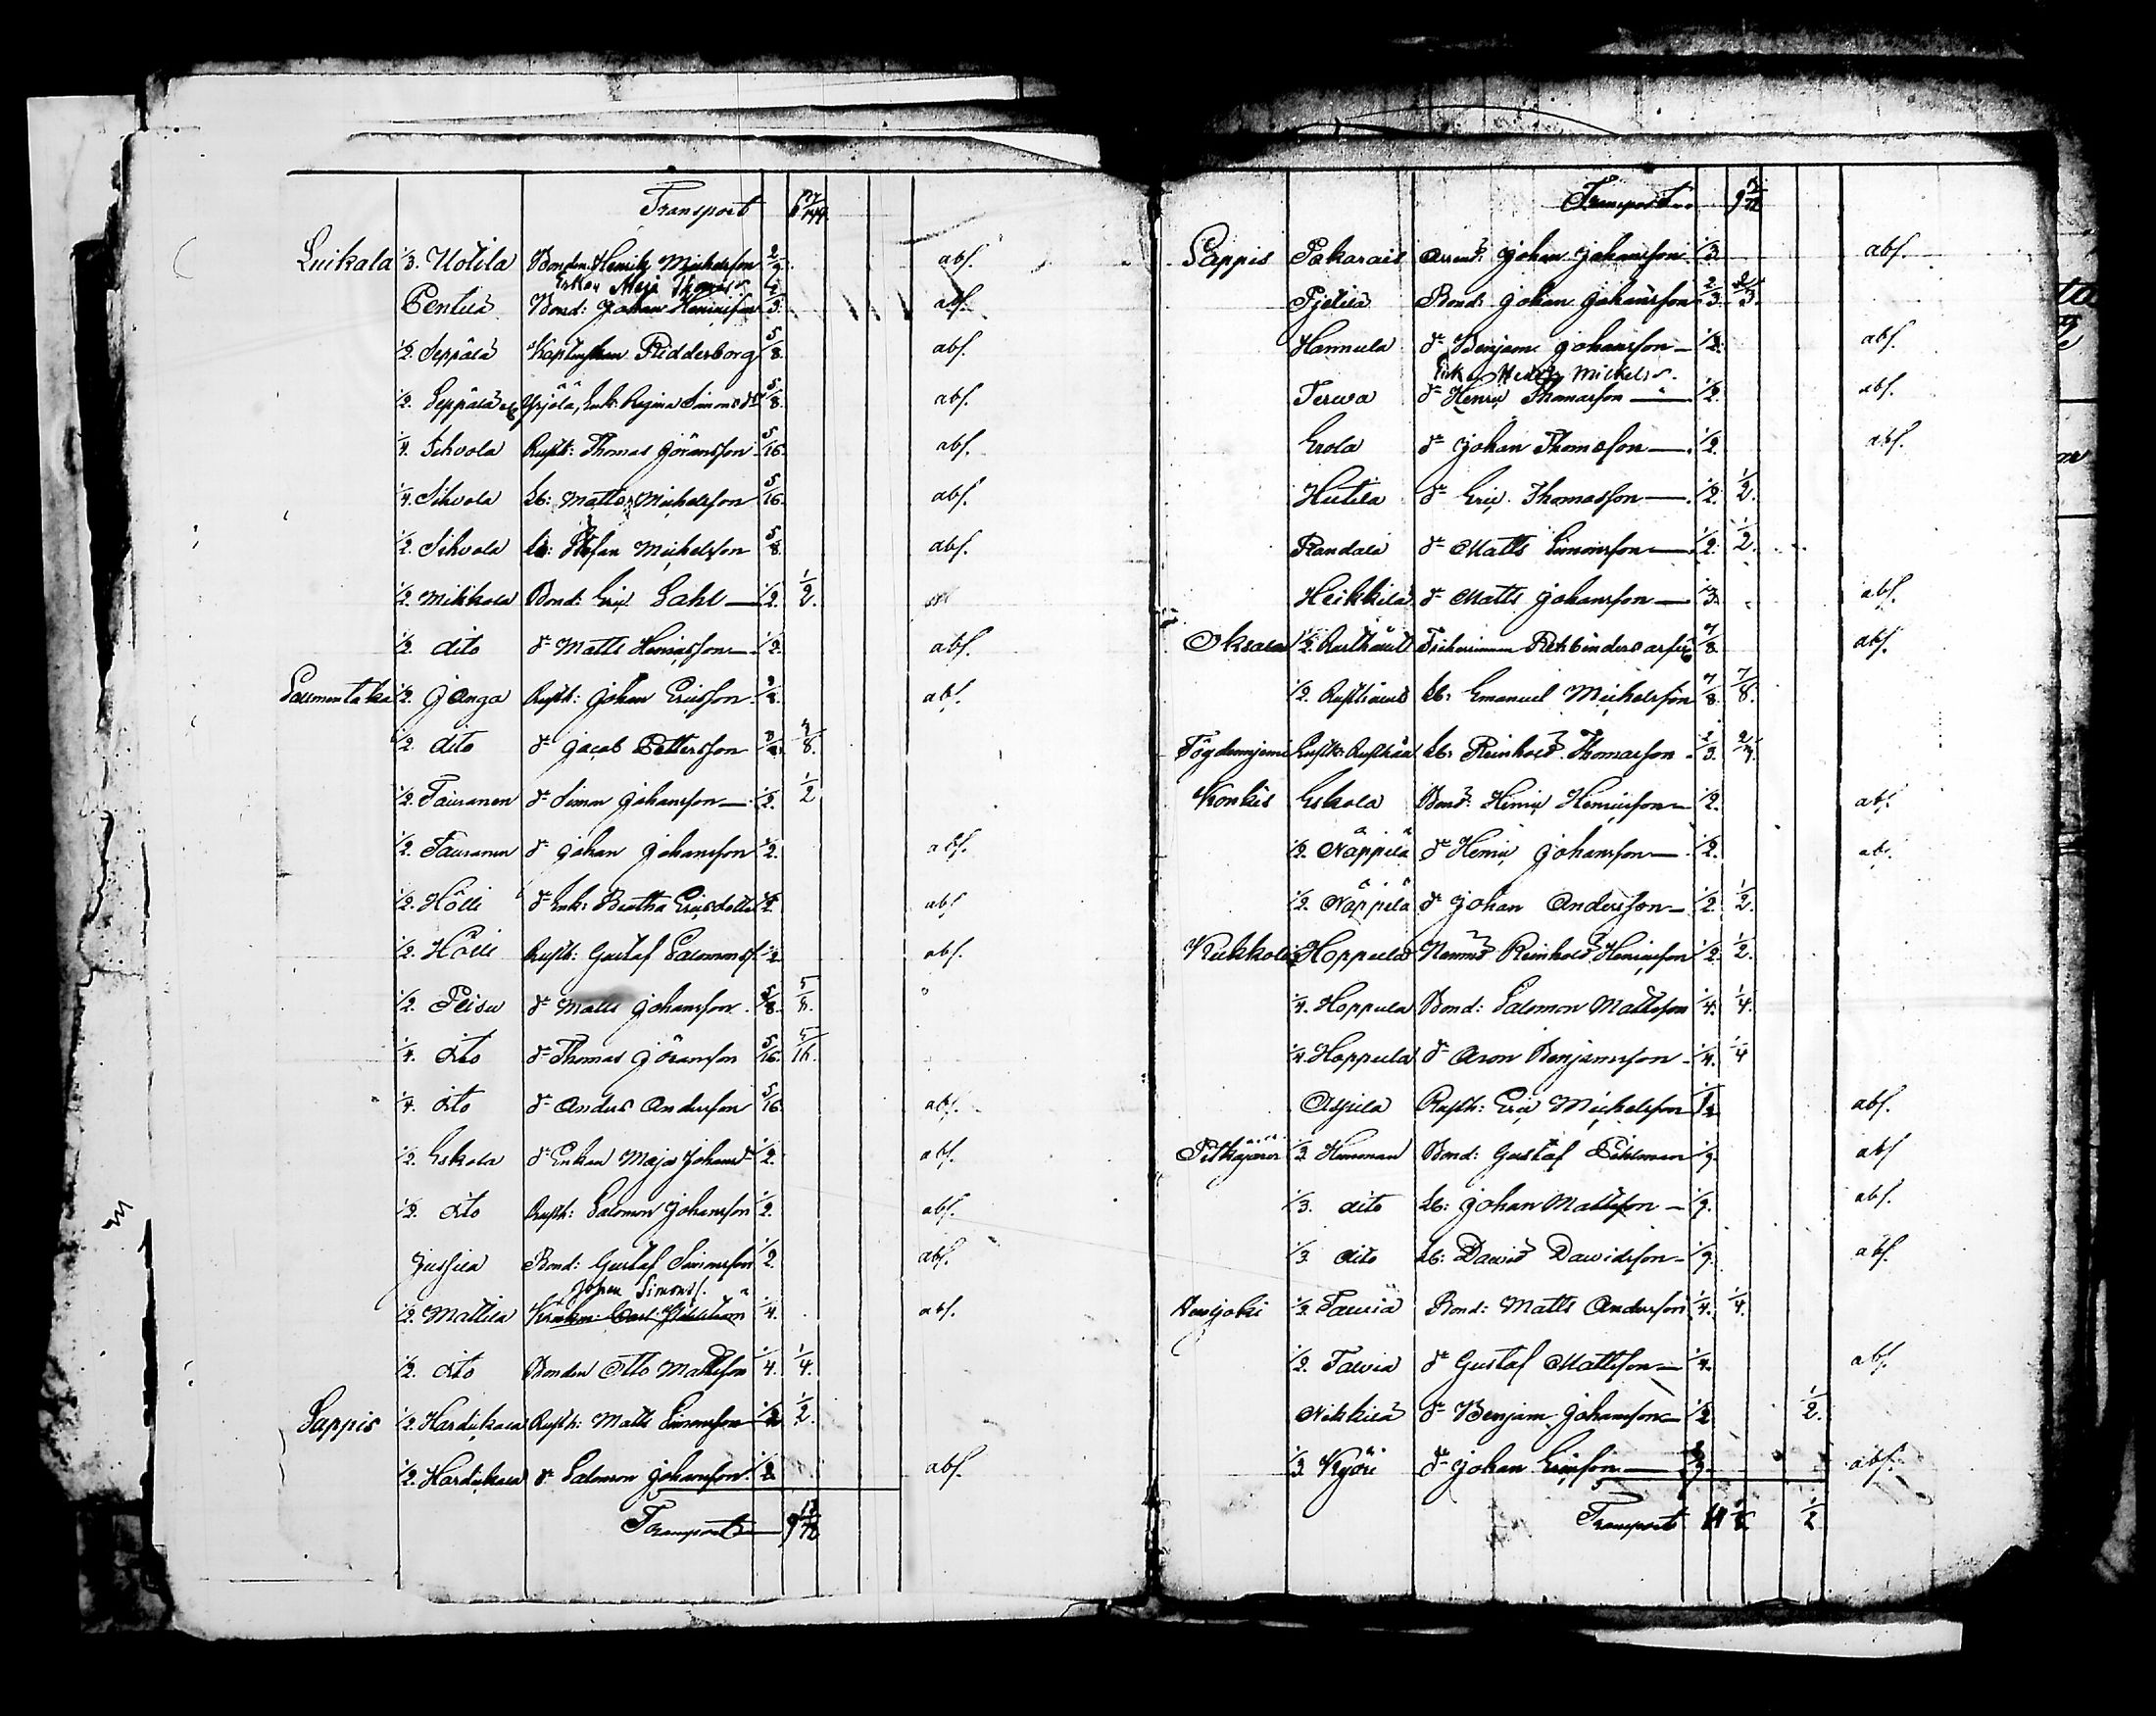 Transport 6 17/144
Luikala 1/3. Uotila Bonden Henrik Michelsson 2/9. abs.
Enkan Maja Thomasdr
Penttilä Bond: Johan Henricsson 2/3. abs.
1/2. Seppälä Ridderborg 5/8. abs.
1/2. Seppälä och Yrjölä, Enk: Regina Simonsdr 5/8. abs.
1/4. Sihvola Rusth: Thomas Göransson 5/16. abs.
1/4. Sihvola Lb: Matts Michelsson 5/16. abs.
1/2. Sihvola Lb: Stefan Michelsson 5/8. abs.
1/2. Mikkola Bond: Eric Sahl — 1/2. 1/2.
1/2. dito dn Matts Henricsson — 1/2. abs.
Saumentaka 1/2. Janga Rusth: Johan Ericsson abs.
1/2. dito dn Jacob Pettersson
1/2. Tauranen dn Simon Johansson — 1/2. 1/2
1/2. Tauranen dn Johan Johansson 1/2. abs.
1/2. Hölli dn Enk: Beatha Ericsdotter 1/2. abs
1/2. Hölli Rusth: Gustaf Salomonss. 1/2. abs.
1/2. Peisu dn Matts Johansson 5/8. 5/8. "
1/4. dito dn Thomas Göransson 5/16. 5/16.
1/4. dito dn Anders Andersson 5/16. abs.
1/2. Eskola dn Enkan Maja Johansdr 1/2. abs.
1/2. dito Rusth: Salomon Johansson 1/2. abs.
Jussila Bond: Gustaf Simonsson 1/2. abs.
Johan Simonss.
1/2. Mattila 1/4. abs.
1/2. dito Bonden Otto Mattsson 1/4. 1/4.
Sappis 1/2. Hardikkala Rusth: Matts Simonsson 1/2 1/2.
1/2. Hardikkala dn Salomon Johansson. 1/2. abs.
Transport — 9
Transport 9
Sappis Pakarais Arrend: Johan Johansson 1/3. abs.
Pjetilä Bond: Johan Johansson 2/3. 2/3.
Hannula dn Benjam: Johansson — 1/2. abs.
Enkan Hedvig Mickelsdr.
Terwa dn Henric Thomasson — 1/2. abs.
Erola dn Johan Thomasson — 1/2. abs.
Hutila dn Eric Thomasson — 1/2. 1/2.
Randala dn Matts Simonsson — 1/2. 1/2.
Heikkilä dn Matts Johansson — 1/3. abs.
Oksala 1/2. Rusthåll Friherrinnan Rehbinders arfv: 7/8. abs.
1/2. Rusthåll Lb: Emanuel Michelsson 7/8. 7/8.
Lb: Reinhold Thomasson 2/3.
Konkis Eskola Bond: Henric Henricsson — 1/2. abs.
1/2. Näppilä dn Henric Johansson — 1/2. abs.
1/2. Näppilä dn Johan Andersson — 1/2. 1/2.
Kukkola Hoppula Nämnd: Reinhold Henricsson 1/2. 1/2.
1/4. Hoppula Bond: Salomon Mattsson 1/4. 1/4.
1/4. Hoppula dn Aron Benjamsson 1/4. 1/4
Rusth: Eric Michelsson abs.
Pitkäjärvi 1/3. Bond: Gustaf Pihlman 1/9. abs
1/3. dito Lb: Johan Mattsson — 1/9. abs.
1/3. dito Lb: David Davidsson — 1/9. abs.
1/2. Tavia Bond: Matts Andersson 1/4. 1/4.
1/2. Tavia dn Gustaf Mattsson — 1/4. abs.
Nikkilä dn Benjam: Johansson — 1/2. 1/2.
1/3. Kyöri dn Johan Ericsson — 2/9. abs.
Transport 1/2.